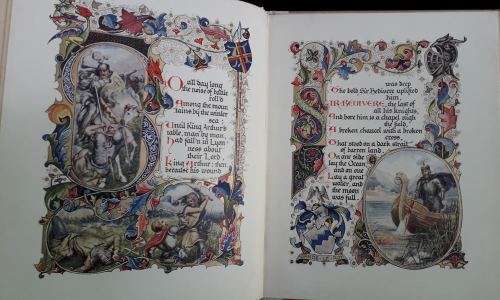 O all day long
the noise of battle
roll'd
Among the moun
tains by the winter
sea:
Until King Arthur's
table, man by man,
Had fall'n in Lyon
ness about
their Lord
King Arthur: then
because his wound
was deep
The bold Sir Bedivere uplifted
him,
SIR BEDIVERE, the last of
all his knights,
And bore him to a chapel nigh
the field,
A broken chancel with a broken
cross,
That stood on a dark strait
of barren land.
On one side
lay the Ocean
and on one
Lay a great
water, and the
moon was
full